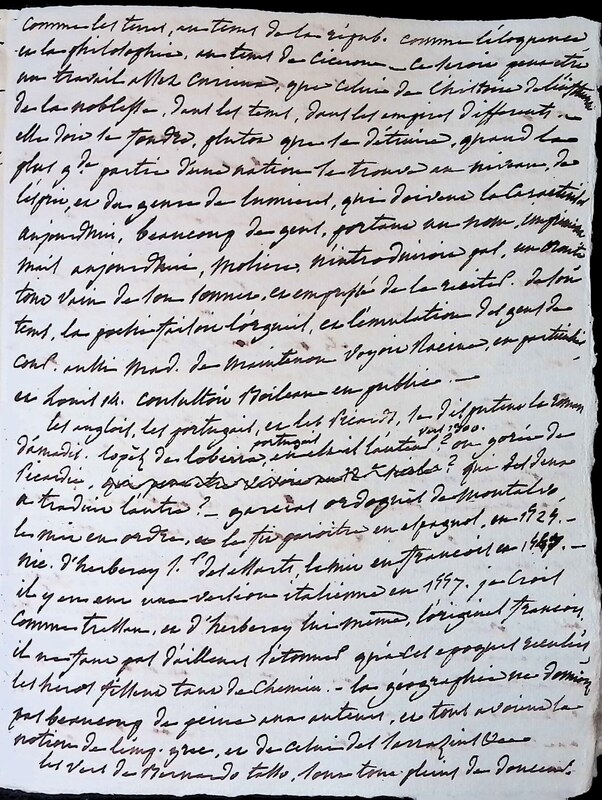 comme les tems, au tems de la répub. comme l'éloquence
et la philosophie, au tems de ciceron — ce seroit peut etre
un travail assez curieux, que celui de l'histoire de
de la noblesse, dans les tems, dans les empires differents. —
elle doit se fondre, plutot que se détruire, quand la
plus gde partie d'une nation se trouve au niveau, de
l'esprit, et du genre de lumieres, qui doivent la
aujourdhui, beaucoup de gens, portent un nom,
mais aujourdhui, moliere, n'introduiroit pas, un
tout vain de son sonnet, et empressé de le reciter. de son
tems, la poesie faisoit l'orgueil, et l'émulation des gens de
cour. aussi mad. de maintenon voyoit Racine, en particulier
et Louis 14. consultoit Boileau en public. —
les anglois, les portugais, et les Picards, se disputent le roman
d'amadis. lopez de lobeira, portugais, en etoit l'auteur vers 1300. ou
Picardie, ? qui des deux
a traduit l'autre? — garcias ordognez de montalvo,
les mit en ordre, et le fit paroitre en espagnol, en 1525. —
nic. d'herberay Sr des essarts, le mit en francois en —
il y en eut une version italienne en 1557. je crois
comme tressan, et d'herberay lui même, l'original francois,
il ne faut pas d'ailleurs s'étonner qu'à ces epoques reculées
les heros fissent tant de chemin. — la géographie ne donnoit
pas beaucoup de peine aux auteurs, et tous avoient la
notion de l'emp. grec, et de celui des sarrazins &a
les vers de Bernardo tasso, sont tout pleins de douceur.